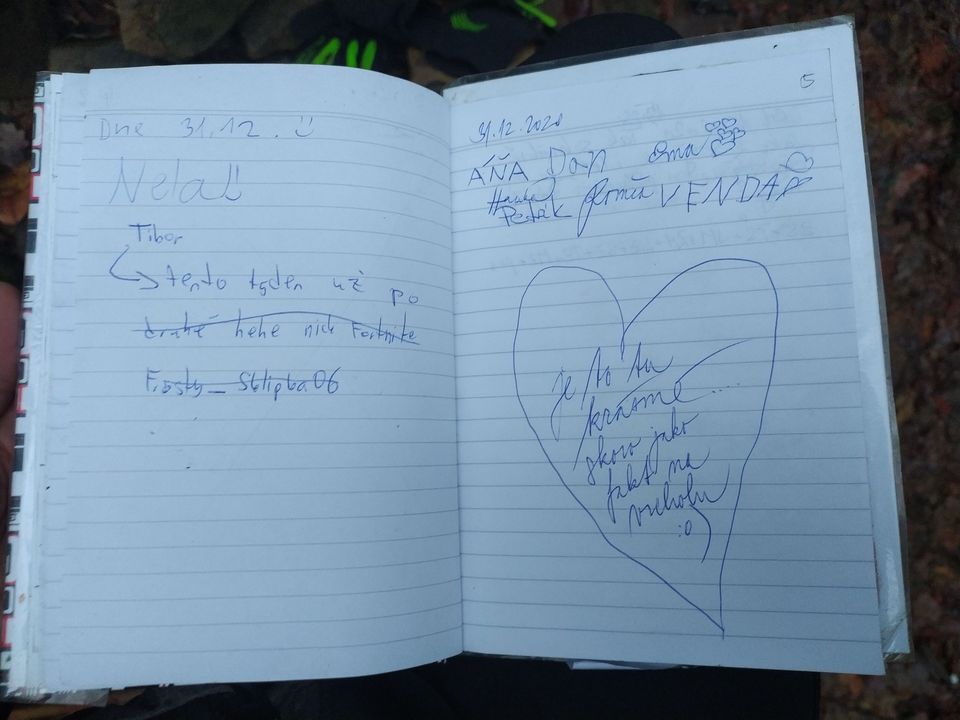 Dne 31.12. :)
Nela!
Tibor
tento tyden už po
druhé hehe nick Fortnite
5
31.12.2020
ÁŇA Dan ema
Hanka
Peťák VENDA
je to tu
krásné ....
skoro jako
fakt na
vrcholu
:o)